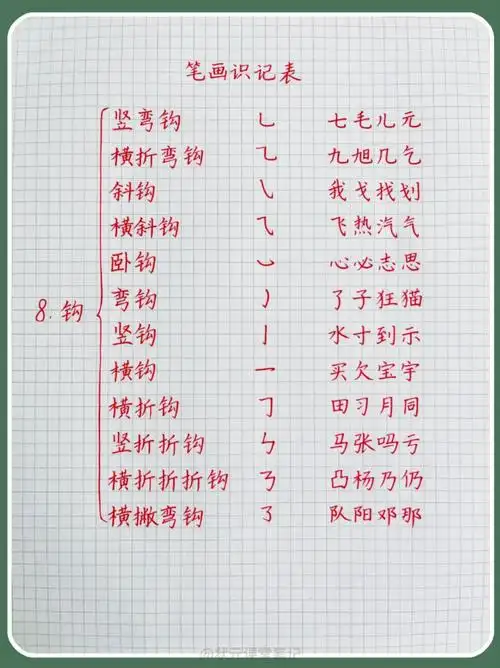 笔画识记表
8.钩
竖弯钩 ㇟ 七毛儿元
横折弯钩 ㇈ 九旭几气
斜钩 ㇂ 我戈找划
横斜钩 ⺄ 飞热汽气
卧钩 ㇃ 心必志思
弯钩 ㇁ 了子狂猫
竖钩 亅 水寸到示
横钩 ㇖ 买欠宝宇
横折钩 ㇆ 田习月同
竖折折钩 ㇉ 马张吗亏
横折折折钩 ㇡ 凸杨乃仍
横撇弯钩 ㇌ 队阳邓那
@状元课堂笔记